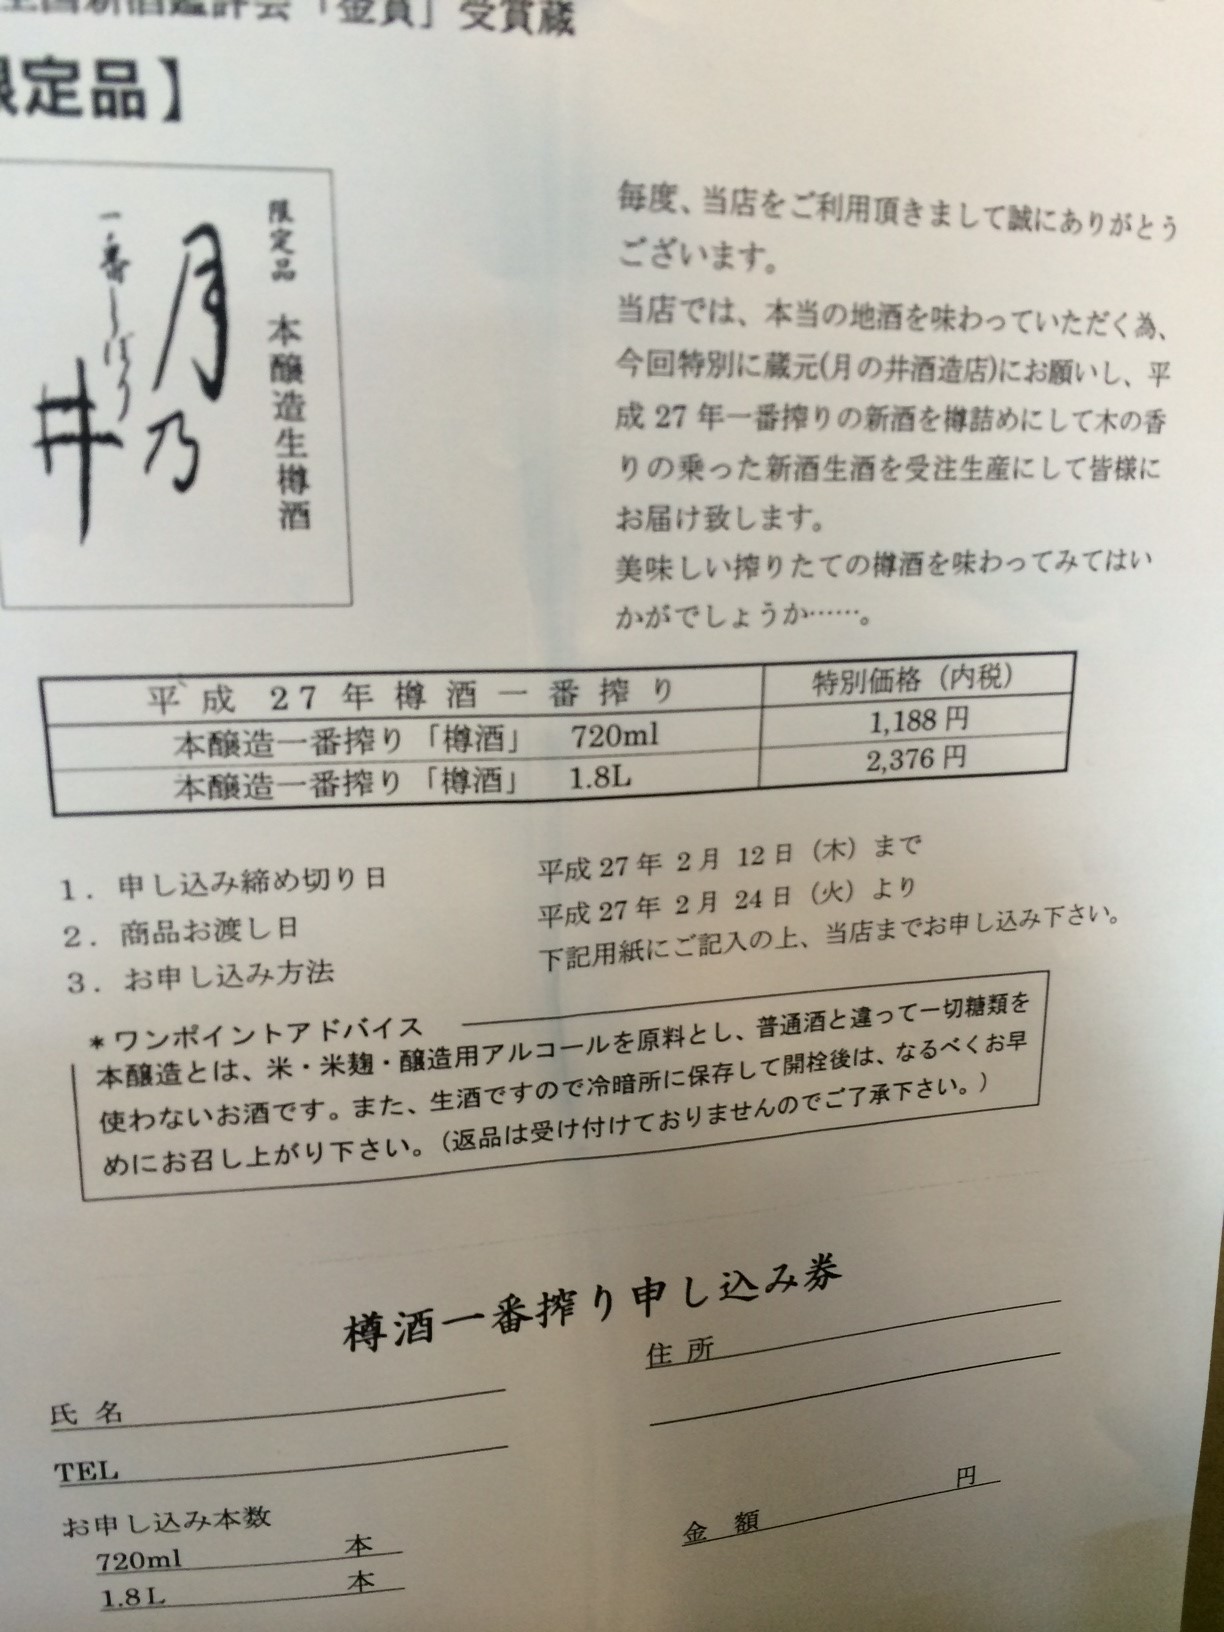 全国新酒鑑評会「金賞」受賞蔵
限定品】
限定品 本醸造生樽酒
月乃井
一番しぼり
毎度、当店をご利用頂きまして誠にありがとう
ございます。
当店では、本当の地酒を味わっていただく為、
今回特別に蔵元(月の井酒造店)にお願いし、平
成 27 年一番搾りの新酒を樽詰めにして木の香
りの乗った新酒生酒を受注生産にして皆様に
お届け致します。
美味しい搾りたての樽酒を味わってみてはい
かがでしょうか……。
平成 27 年樽酒一番搾り 特別価格（内税）
本醸造一番搾り「樽酒」 720ml 1,188 円
本醸造一番搾り「樽酒」 1.8L 2,376 円
1．申し込み締め切り日 平成 27 年 2 月 12 日（木）まで
2．商品お渡し日 平成 27 年 2 月 24 日（火）より
3．お申し込み方法 下記用紙にご記入の上、当店までお申し込み下さい。
＊ワンポイントアドバイス
本醸造とは、米・米麹・醸造用アルコールを原料とし、普通酒と違って一切糖類を
使わないお酒です。また、生酒ですので冷暗所に保存して開栓後は、なるべくお早
めにお召し上がり下さい。（返品は受け付けておりませんのでご了承下さい。）
樽酒一番搾り申し込み券
氏 名
住 所
TEL
お申し込み本数
720ml 本
1.8L 本
金 額 円